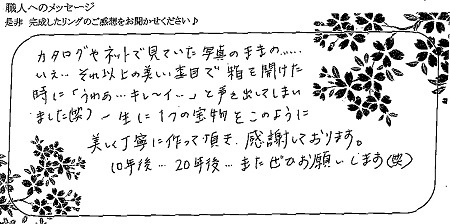 職人へのメッセージ
是非 完成したリングのご感想をお聞かせください♪
カタログやネットで見ていた写真のままの……
いえ… それ以上の美しい杢目で 箱を開けた
時に「うわぁ…キレ〜イ…」と声を出してしまい
ました(笑) 一生に1つの宝物をこのように
美しく丁寧に作って頂き、感謝しております。
10年後… 20年後… またぜひお願いします(笑)